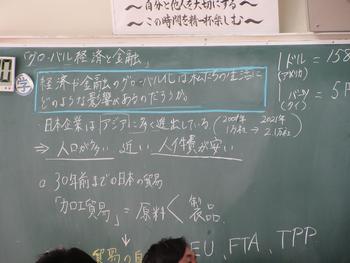 〜自分と他人を大切にする〜
〜この時間を精一杯楽しむ〜
「グローバル経済と金融」
学
経済や金融のグローバル化は私たちの生活に
どのような影響があるのだろうか。
1ドル = 158
(アメリカ)
1バーツ = 5
(タイ)
・日本企業はアジアに多く進出している
(2004年 → 2021年
1万社 2.1万社)
⇒ 人口が多い 近い 人件費が安い
○ 30年前までの日本の貿易
「加工貿易」= 原料 < 製品
貿易の
EU, FTA, TPP